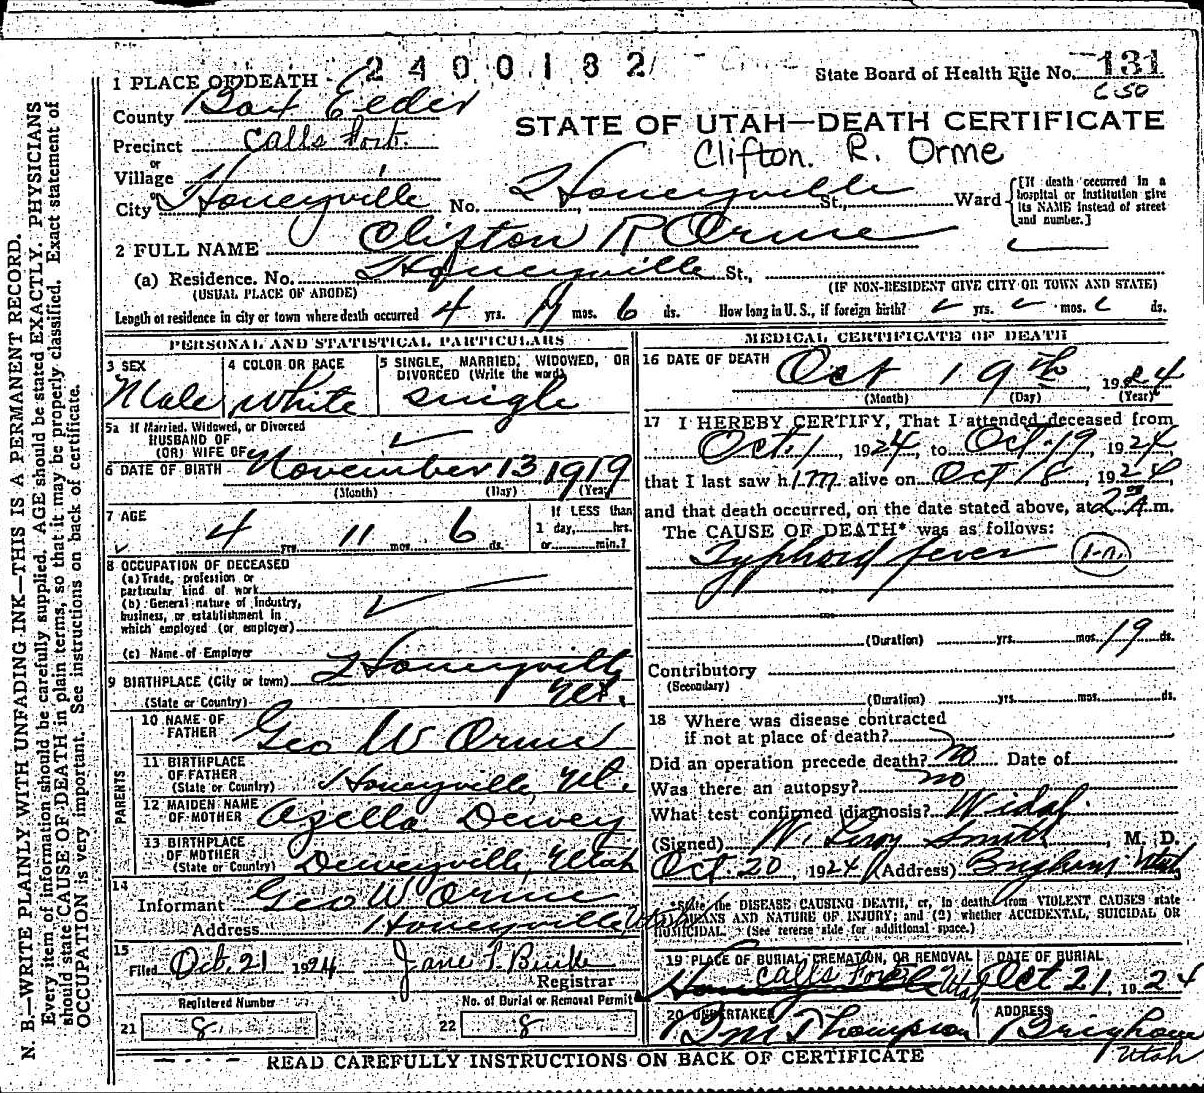 2400182
1 PLACE OF DEATH
State Board of Health File No. 131
County Box Elder
C 50
STATE OF UTAH—DEATH CERTIFICATE
Precinct Calls Fort.
Clifton. R. Orme
or
Village
or
City Honeyville No. Honeyville St., Ward
[If death occurred in a hospital or institution give its NAME instead of street and number.]
2 FULL NAME Clifton R Orme
(a) Residence. No. Honeyville St.,
(USUAL PLACE OF ABODE) (IF NON-RESIDENT GIVE CITY OR TOWN AND STATE)
Length of residence in city or town where death occurred 4 yrs. 11 mos. 6 ds. How long in U. S., if foreign birth? yrs. mos. ds.
PERSONAL AND STATISTICAL PARTICULARS
3 SEX
Male
4 COLOR OR RACE
White
5 SINGLE, MARRIED, WIDOWED, OR
DIVORCED (Write the word)
single
5a If Married, Widowed, or Divorced
HUSBAND OF
(OR) WIFE OF
6 DATE OF BIRTH November 13 1919
(Month) (Day) (Year)
7 AGE
4 yrs. 11 mos. 6 ds.
If LESS than
1 day, hrs.
or min.?
8 OCCUPATION OF DECEASED
(a) Trade, profession or
particular kind of work
(b) General nature of industry,
business, or establishment in
which employed (or employer)
(c) Name of Employer
9 BIRTHPLACE (City or town) Honeyville
(State or Country) Ut.
PARENTS
10 NAME OF
FATHER Geo W Orme
11 BIRTHPLACE
OF FATHER
(State or Country) Honeyville, Ut.
12 MAIDEN NAME
OF MOTHER Azella Dewey
13 BIRTHPLACE
OF MOTHER
(State or Country) Deweyville, Utah
14
Informant Geo W Orme
Address Honeyville, Utah
15
Filed Oct. 21 1924 Jane P. Burke
Registrar
Registered Number
21 8
No. of Burial or Removal Permit
22 8
MEDICAL CERTIFICATE OF DEATH
16 DATE OF DEATH
Oct 19th, 1924
(Month) (Day) (Year)
17 I HEREBY CERTIFY, That I attended deceased from
Oct. 1, 1924, to Oct. 19, 1924
that I last saw him alive on Oct 18, 1924
and that death occurred, on the date stated above, at 2 A.m.
The CAUSE OF DEATH* was as follows:
Typhoid fever
(Duration) yrs. mos. 19 ds.
Contributory
(Secondary)
(Duration) yrs. mos. ds.
18 Where was disease contracted
if not at place of death?
Did an operation precede death? no Date of
Was there an autopsy? no
What test confirmed diagnosis? Widal.
(Signed) W. Leroy Smith, M. D.
Oct. 20, 1924 (Address) Brigham Utah
*State the DISEASE CAUSING DEATH, or, in deaths from VIOLENT CAUSES state
(1) MEANS AND NATURE OF INJURY; and (2) whether ACCIDENTAL, SUICIDAL OR
HOMICIDAL. (See reverse side for additional space.)
19 PLACE OF BURIAL, CREMATION, OR REMOVAL
Calls Fort
Honeyville Utah
DATE OF BURIAL
Oct 21, 1924
20 UNDERTAKER
Thompson
ADDRESS
Brigham
Utah
READ CAREFULLY INSTRUCTIONS ON BACK OF CERTIFICATE
N. B.—WRITE PLAINLY WITH UNFADING INK—THIS IS A PERMANENT RECORD.
Every item of information should be carefully supplied. AGE should be stated EXACTLY. PHYSICIANS
should state CAUSE OF DEATH in plain terms, so that it may be properly classified. Exact statement of
OCCUPATION is very important. See instructions on back of certificate.